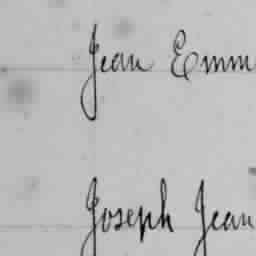 Jean Emm
Joseph Jean